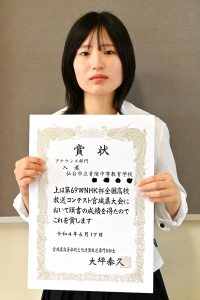 賞状
アナウンス部門
入選
仙台市立青陵中等教育学校
上は第69回NHK杯全国高校
放送コンテスト宮城県大会に
おいて頭書の成績を得たので
これを賞します
令和4年6月17日
大坪泰久